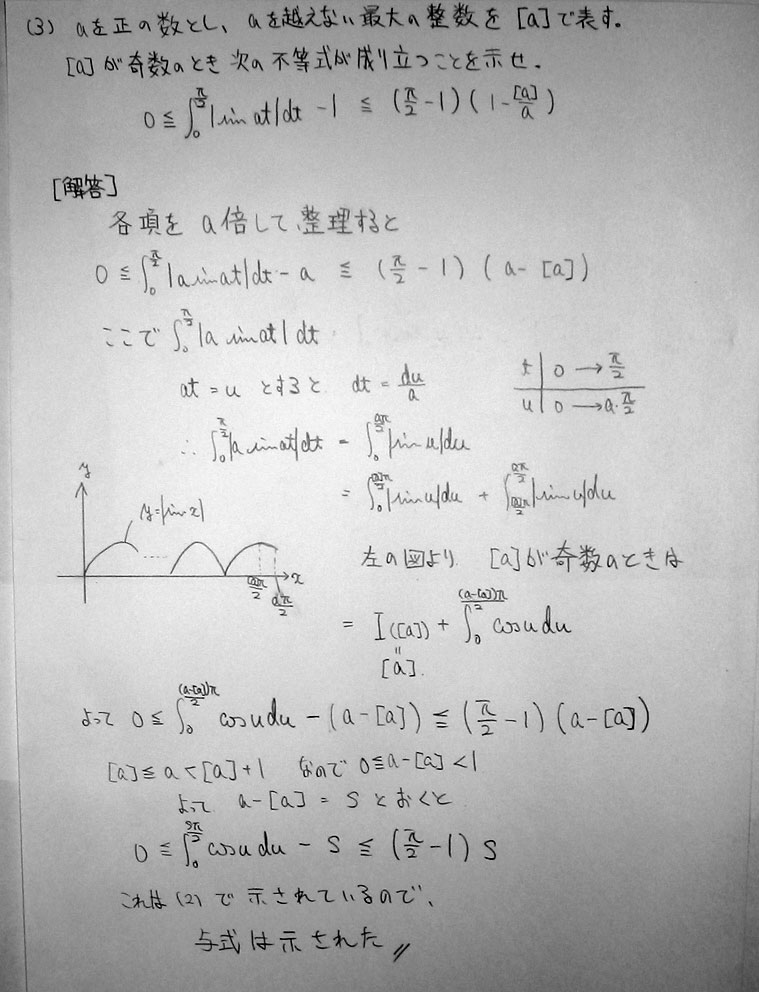 (3) aを正の数とし、aを越えない最大の整数を[a]で表す。
[a]が奇数のとき次の不等式が成り立つことを示せ.
0 ≦ ∫_0^{π/2} |sin at| dt - 1 ≦ (π/2 - 1)(1 - [a]/a)
[解答]
各項をa倍して、整理すると
0 ≦ ∫_0^{π/2} |a sin at| dt - a ≦ (π/2 - 1)(a - [a])
ここで ∫_0^{π/2} |a sin at| dt
at = u とすると dt = du/a
t | 0 → π/2
u | 0 → a・π/2
∴ ∫_0^{π/2} |a sin at| dt = ∫_0^{aπ/2} |sin u| du
= ∫_0^{[a]π/2} |sin u| du + ∫_{[a]π/2}^{aπ/2} |sin u| du
y
y=|sin x|
x
[a]π/2
aπ/2
左の図より. [a]が奇数のときは
= I([a]) + ∫_0^{(a-[a])π/2} cos u du
॥
[a].
よって 0 ≦ ∫_0^{(a-[a])π/2} cos u du - (a - [a]) ≦ (π/2 - 1)(a - [a])
[a] ≦ a < [a] + 1 なので 0 ≦ a - [a] < 1
よって a - [a] = S とおくと
0 ≦ ∫_0^{Sπ/2} cos u du - S ≦ (π/2 - 1) S
これは(2)で示されているので、
与式は示された〃